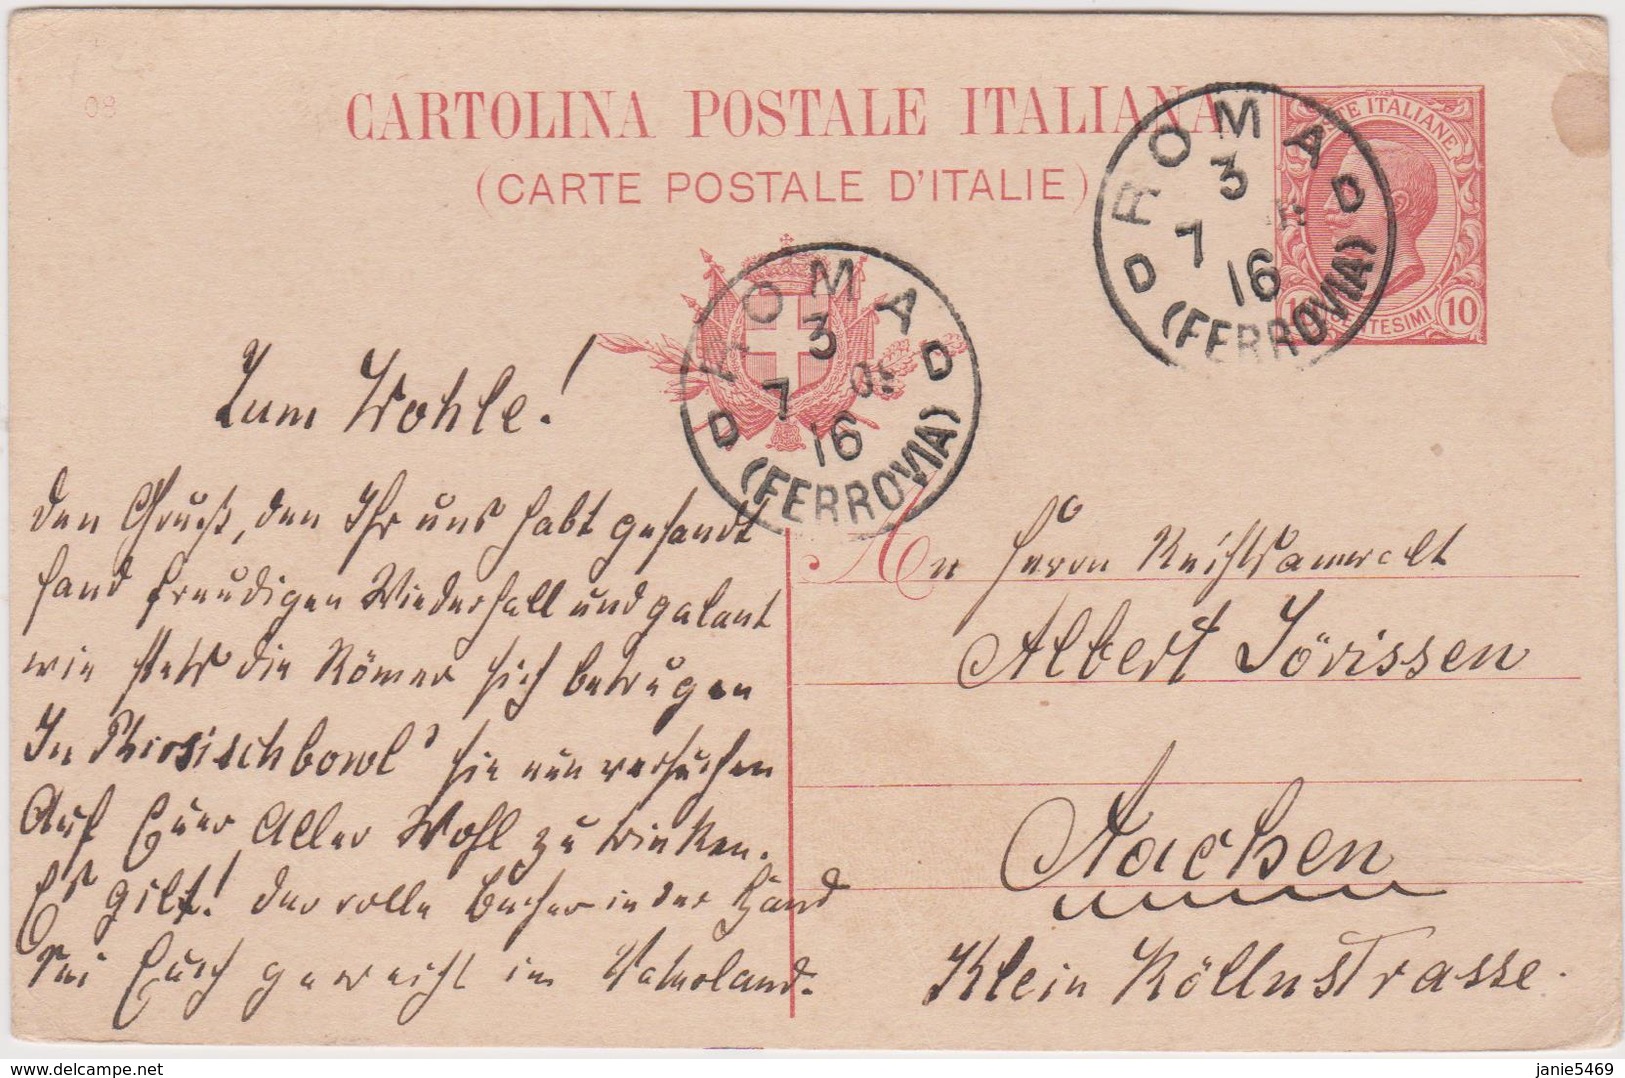 08
CARTOLINA POSTALE ITALIANA
(CARTE POSTALE D'ITALIE)
POSTE ITALIANE
10 CENTESIMI 10
ROMA
3
7
16
D D
(FERROVIA)
ROMA
3
7 08
16
D D
(FERROVIA)
Zum Wohle!
Den Gruß, den Ihr uns habt gesandt
fand freudigen Wiederhall und galant
wie stets die Römer sich betragen
In Pfirsischbowl' sie nun versuchen
Auf Euer Aller Wohl zu trinken.
Es gilt! Der volle Becher in der Hand
Sei Euch geweiht im Vaterland.
An Herrn Rechtsanwalt
Albert Jörissen
Aachen
Klein Köllnstrasse.
janie5469